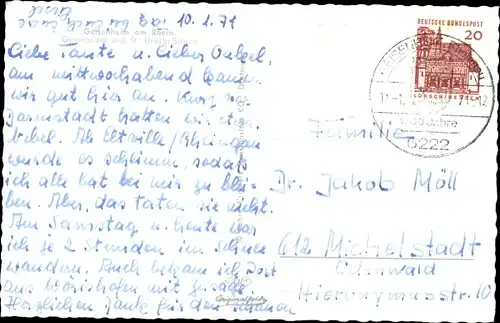 10.1.71
Geisenheim am Rhein
Gymnasium und St. Ursula Schule
Liebe Tante u. Lieber Onkel,
am Mittwochabend kamen
wir gut hier an. Kurz vor
Darmstadt hatten wir etwas
Nebel. Ab Eltville/Rheingau
wurde es schlimm, sodaß
ich alle bat bei mir zu blei-
ben. Aber, das taten sie nicht.
Am Samstag u. heute war
ich je 2 Stunden im Schnee
wandern. Auch bekam ich Post
aus Wörishofen mit
Herzlichen Dank für den schönen
DEUTSCHE BUNDESPOST
20
LORSCH/HESSEN
11.-1.71-12
Jahre
6222
Familie
Dr. Jakob Möll
612 Michelstadt
Odenwald
Hieronymusstr. 10